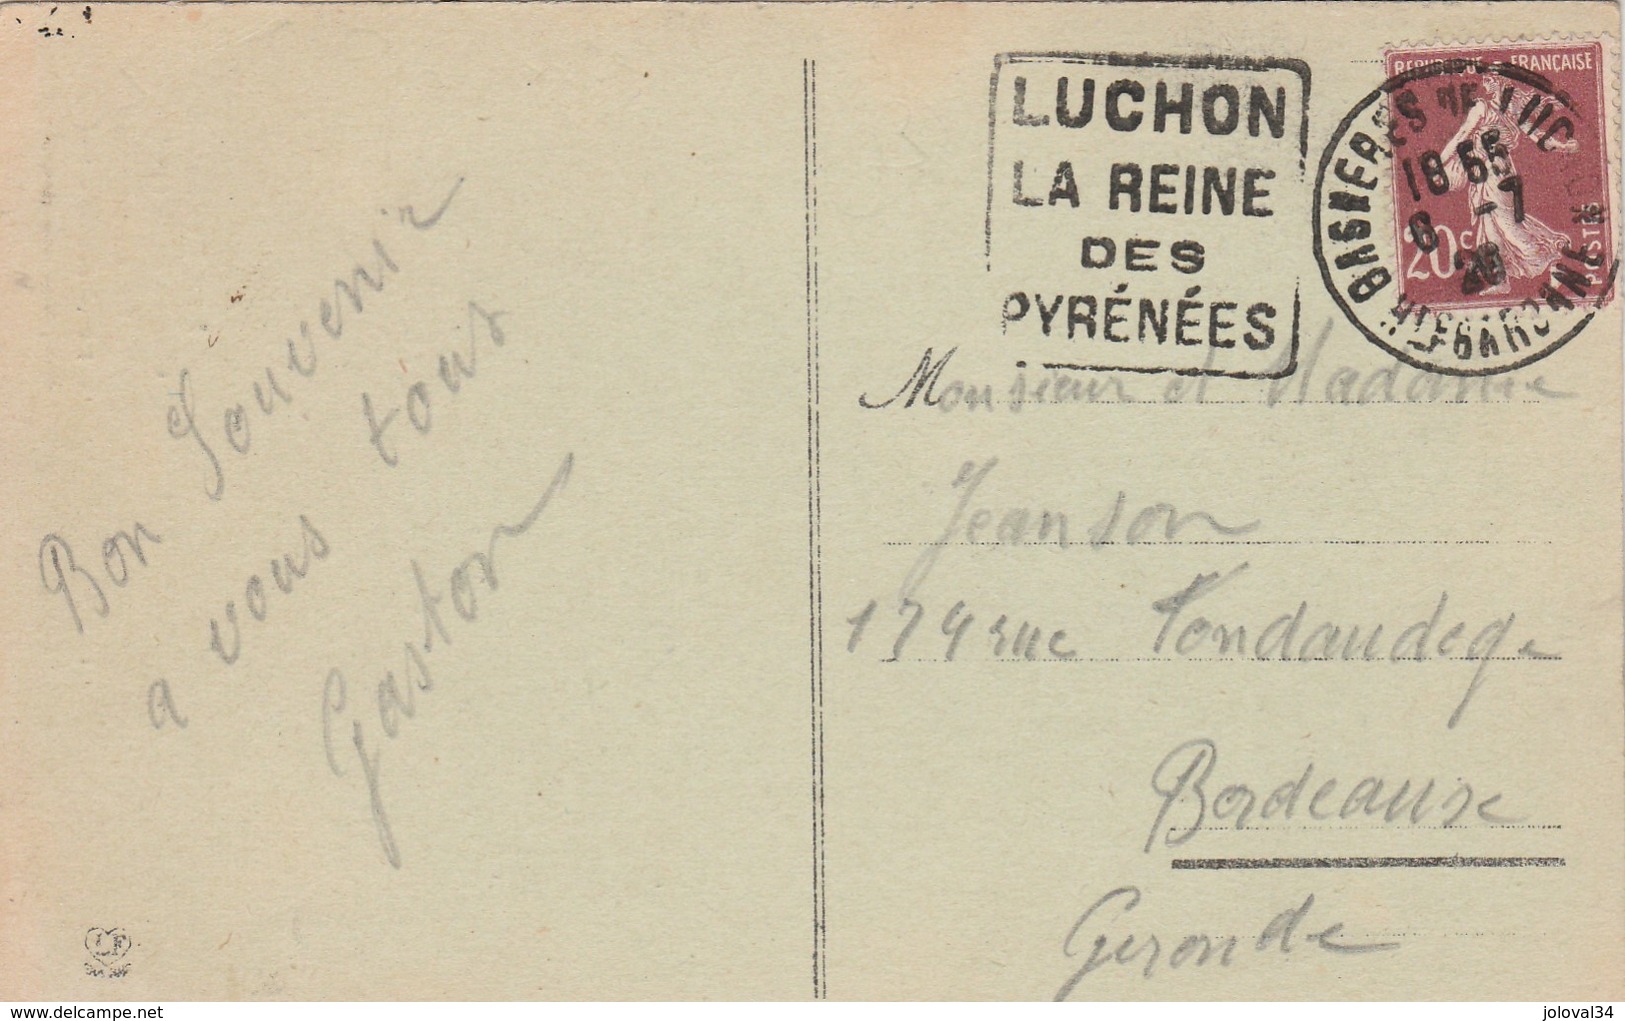 Bon Souvenir
a vous tous
Gaston
LUCHON
LA REINE
DES
PYRÉNÉES
REPUBLIQUE FRANÇAISE
20c
POSTES
BAGNERES DE LUCHON
18 55
6 -7
HTE GARONNE
Monsieur et Madame
Jeanson
174 rue Fondaudege
Bordeaux
Gironde
LF
www.delcampe.net
joloval34